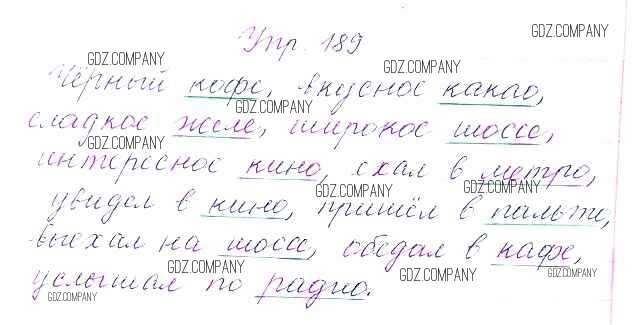 Упр. 189
GDZ.COMPANY
GDZ.COMPANY
GDZ.COMPANY
Чёрный кофе, вкусное какао,
GDZ.COMPANY
сладкое желе, широкое шоссе,
GDZ.COMPANY
интересное кино, ехал в метро,
GDZ.COMPANY
GDZ.COMPANY
увидел в кино, пришёл в пальто,
выехал на шоссе, обедал в кафе,
GDZ.COMPANY
GDZ.COMPANY
GDZ.COMPANY
услышал по радио.
GDZ.COMPANY